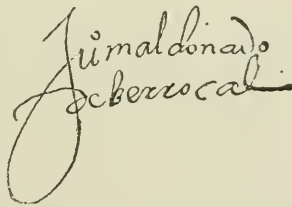 Juº maldonado
de berrocal